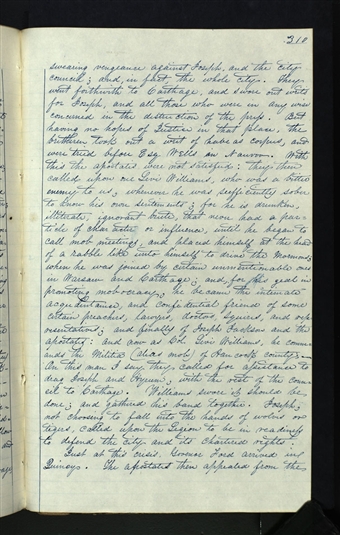 310
swearing vengeance against Joseph, and the city
council; and, in fact the whole city. They
went forthwith to Carthage, and swore out writs
for Joseph, and all those who were in any wise
concerned in the destruction of the press. But
having no hopes of Justice in that place, the
brethren took out a writ of habeas corpus, and
were tried before Esq. Wells in Nauvoo. With
this the apostates were not satisfied: they then
called upon one Levi Williams, who was a bitter
enemy to us, whenever he was sufficiently sober
to know his own sentiments; for he is drunken,
illiterate, ignorant brute, that never had a par-
ticle of character or influence, until he began to
call mob meetings, and placed himself at the head
of a rabble like unto himself to drive the Mormons,
when he was joined by certain unmentionable ones
in Warsaw and Carthage; and for his zeal in
promoting mobocracy, he became the intimate
acquaintance, and confidential friend of some
certain preachers, lawyers, doctors, squires, and rep-
resentatives; and finally of Joseph Jackson and the
apostates: and now as Col. Levi Williams, he comm-
ands the Militia (alias mob) of Hancock county.
On this man I say, they called for assistance to
drag Joseph and Hyrum, with the rest of the coun-
cil to Carthage. Williams swore it should be
done; and gathered his band together. Joseph,
not choosing to fall into the hands of wolves or
tigers, called upon the Legion to be in readiness
to defend the city and its chartered rights.
Just at this crisis, Governor Ford arrived in
Quincy. The apostates then appealed from the